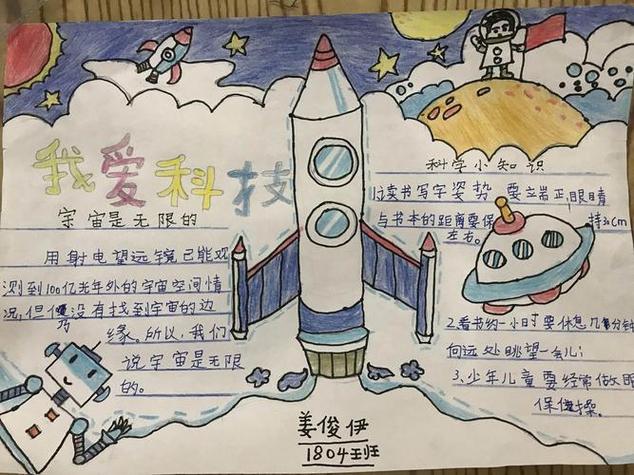 我爱科技
宇宙是无限的
用射电望远镜已能观
测到100亿光年外的宇宙空间情
况,但仍没有找到宇宙的边
缘。所以,我们
说宇宙是无限
的。
科学小知识
1、读书写字姿势要立岩正,眼睛
与书本的距离要保持30cm
左右。
2.看书约一小时要休息几分钟
向远处眺望一会儿;
3、少年儿童要经常做眼
保健操。
姜俊伊
1804班